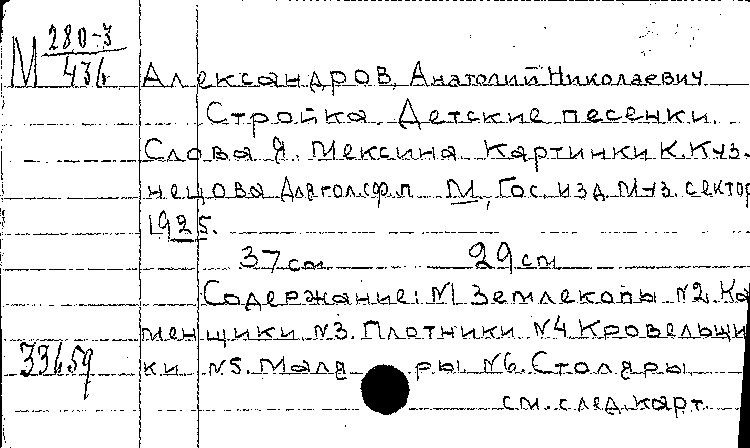 М 280-3
436
Александров, Анатолий Николаевич
Стройка. Детские песенки.
Слова Я. Мексина Картинки К. Куз.
нецова Для гол. с ф. п. М., Гос. изд. Муз. сектор
1925.
37 см 29 см
Содержание: №1 Землекопы №2. Ка
менщики №3. Плотники №4 Кровельщи
33659
ки №5. Маляры. №6. Столяры
см. след. карт.